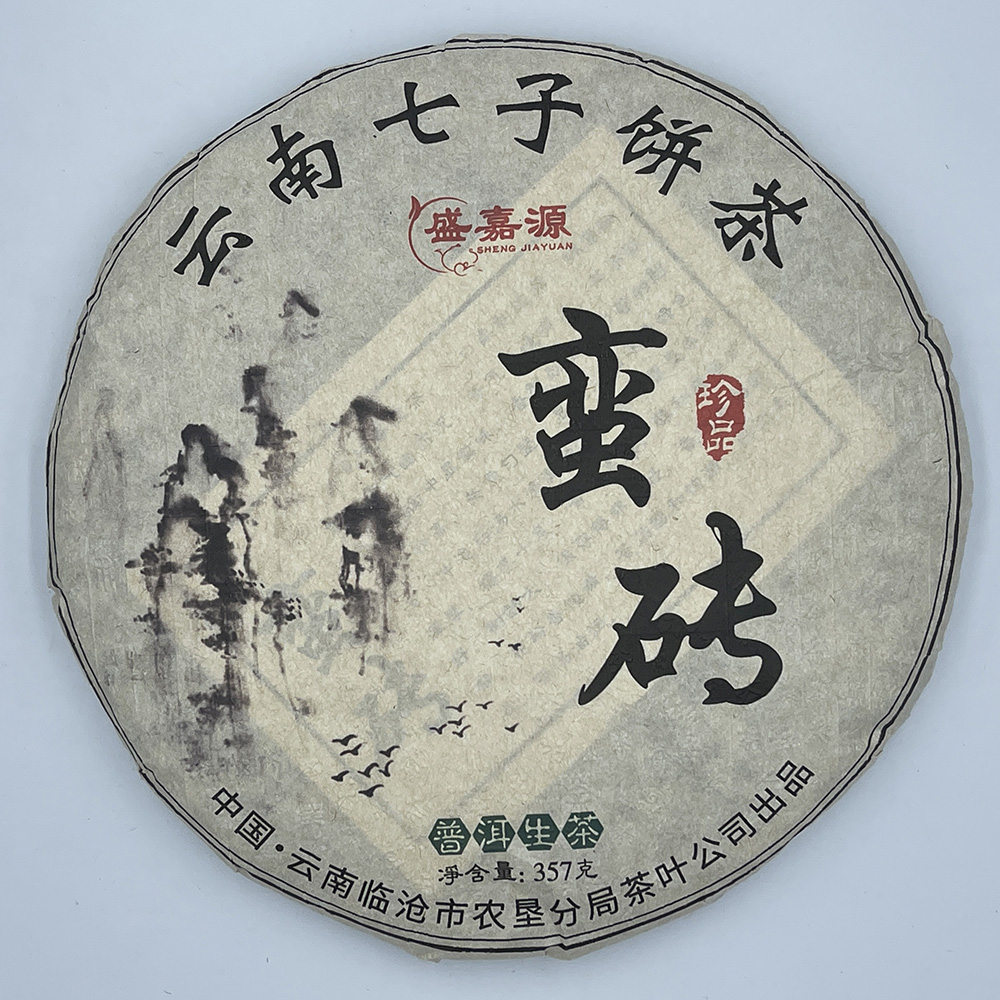 云南七子饼茶
盛嘉源
SHENG JIAYUAN
蛮砖
珍品
普洱生茶
净含量：357克
中国·云南临沧市农垦分局茶叶公司出品